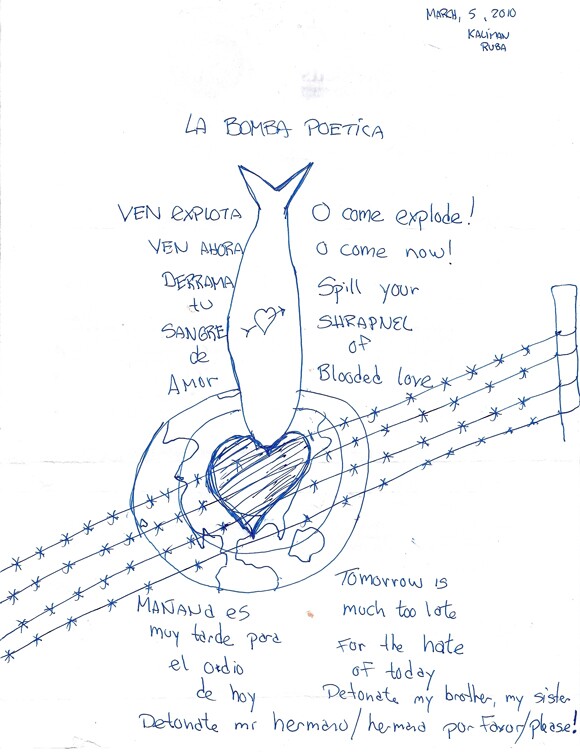 MARCH, 5, 2010
KALIMAN
RUBA
LA BOMBA POETICA
VEN EXPLOTA
VEN AHORA
DERRAMA
tu
SANGRE
de
AMOR
O come explode!
O come now!
Spill your
SHRAPNEL
of
Blooded love
MAÑANA es
muy tarde para
el odio
de hoy
Tomorrow is
much too late
For the hate
of today
Detonate my brother, my sister
Detonate mi hermano/hermana por Favor/please!